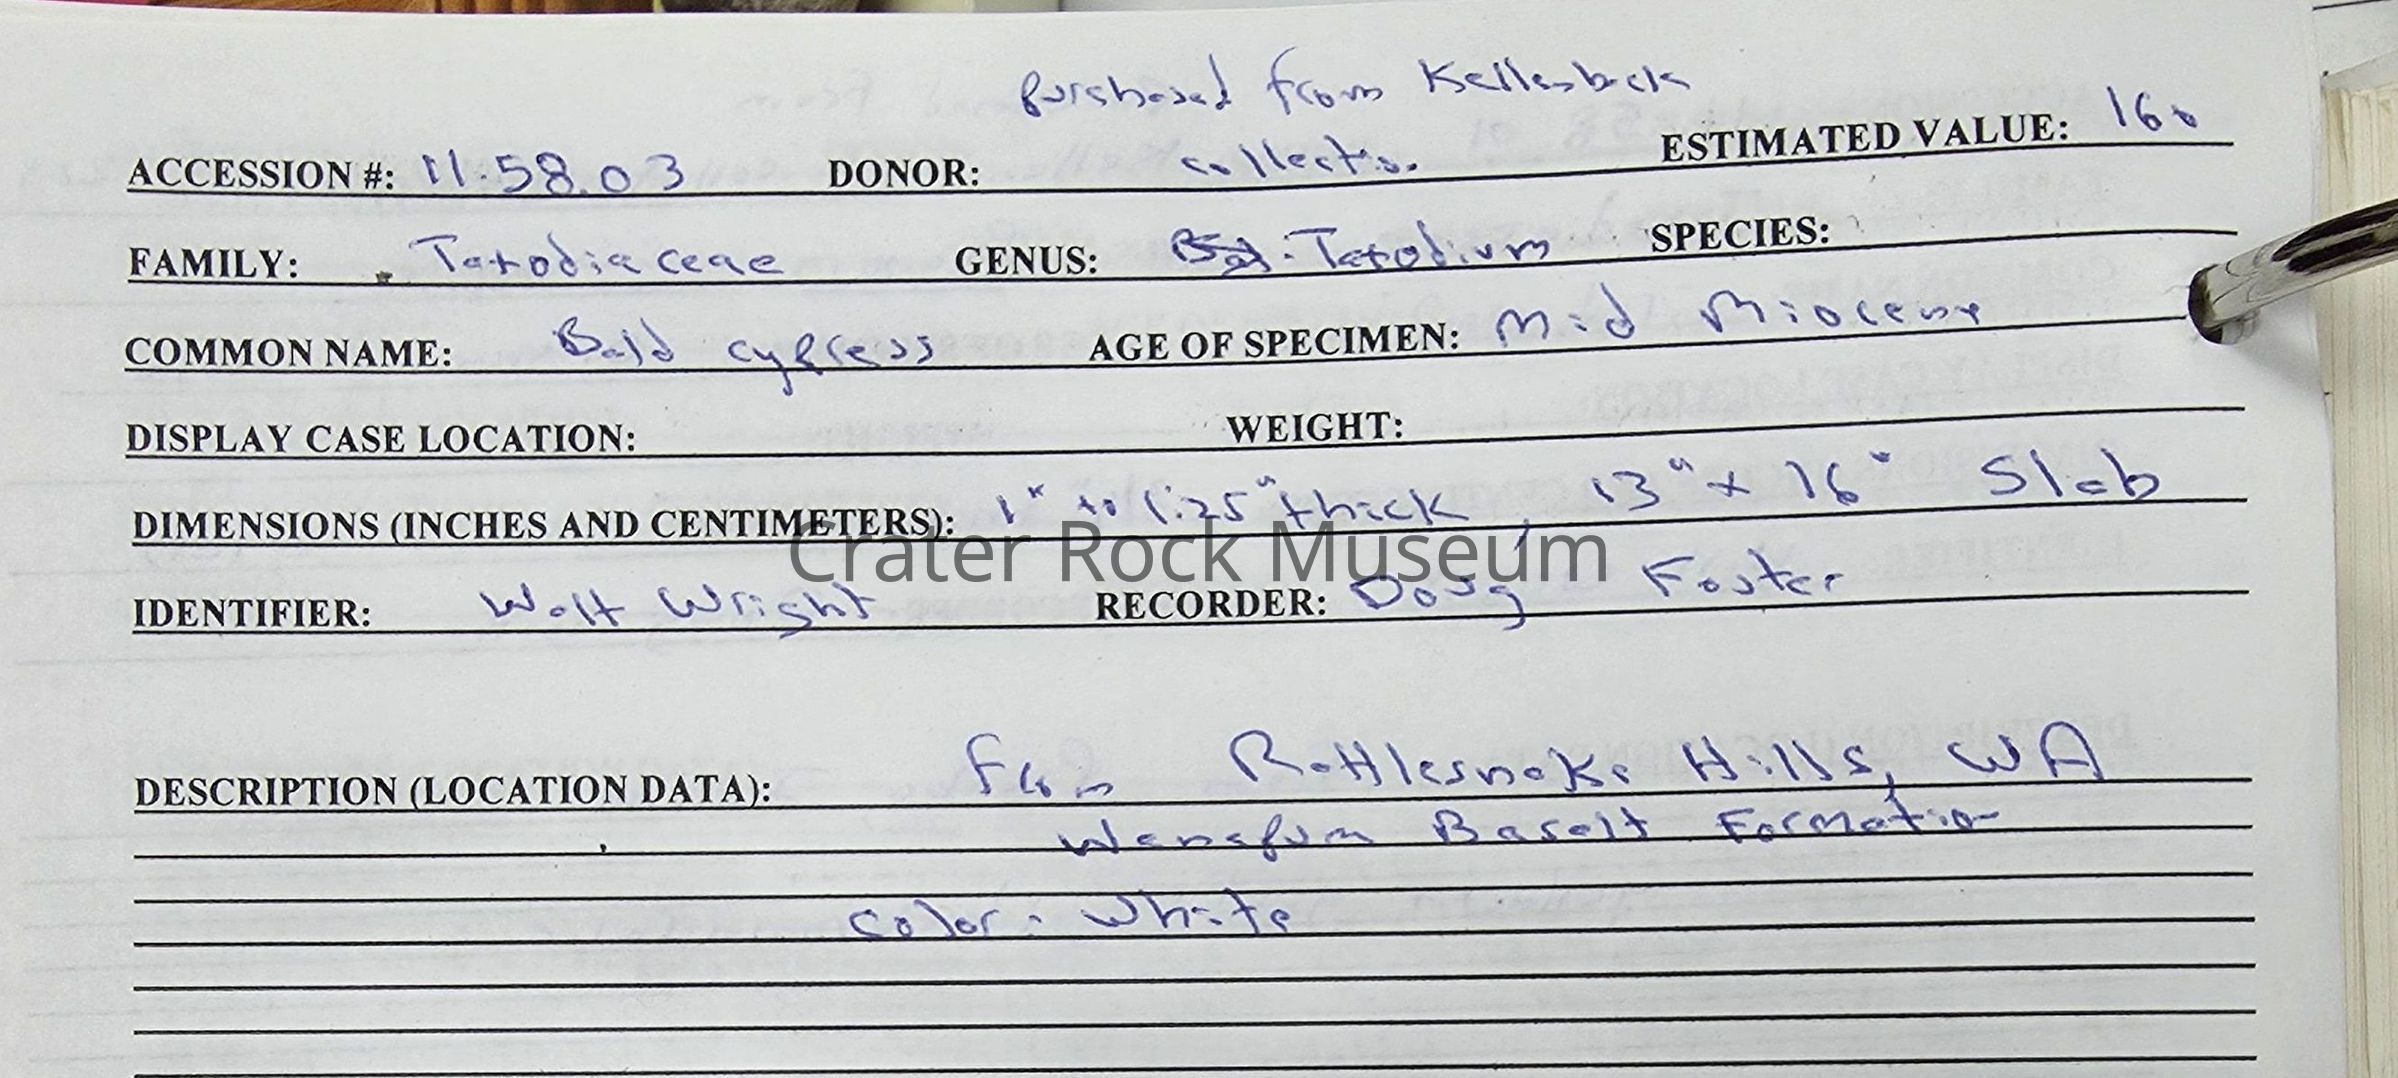 purchased from Kellenbeck
ACCESSION #: 11.58.03 DONOR: collectio. ESTIMATED VALUE: 160
FAMILY: Taxodiaceae GENUS: Taxodium SPECIES:
COMMON NAME: Bald cypress AGE OF SPECIMEN: Mid Miocene
DISPLAY CASE LOCATION: WEIGHT:
DIMENSIONS (INCHES AND CENTIMETERS): 1" to 1.25" thick, 13" x 16" Slab
Crater Rock Museum
IDENTIFIER: Walt Wright RECORDER: Doug Foster
DESCRIPTION (LOCATION DATA): From Rattlesnake Hills, WA
Wanapum Basalt Formation
color: white